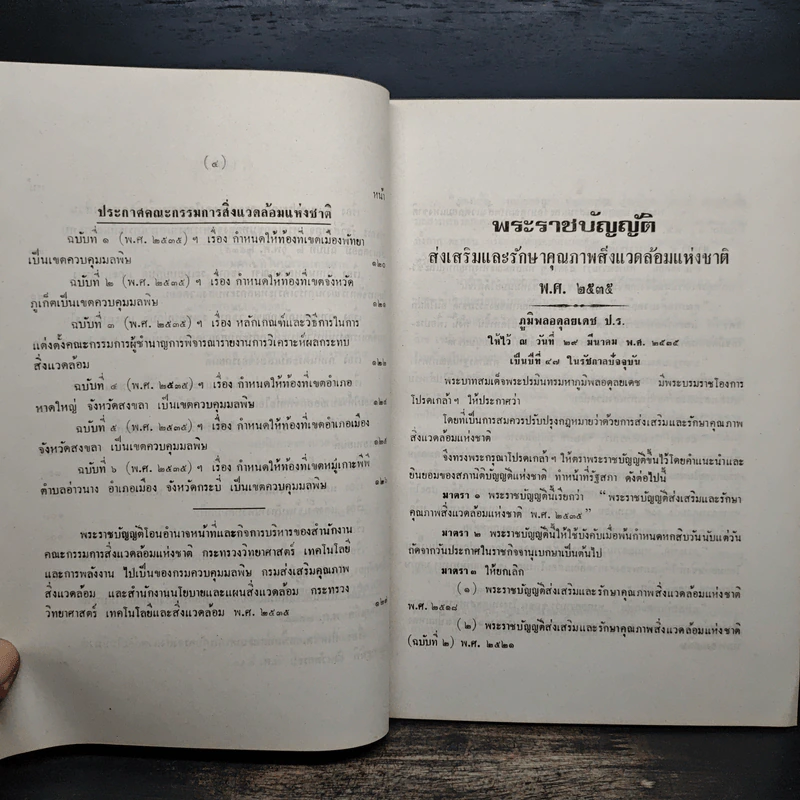 (๔)
หน้า
ประกาศคณะกรรมการสิ่งแวดล้อมแห่งชาติ
ฉบับที่ ๑ (พ.ศ. ๒๕๓๕) ฯ เรื่อง กำหนดให้ท้องที่เขตเมืองพัทยา
เป็นเขตควบคุมมลพิษ ๑๒๐
ฉบับที่ ๒ (พ.ศ. ๒๕๓๕) ฯ เรื่อง กำหนดให้ท้องที่เขตจังหวัด
ภูเก็ตเป็นเขตควบคุมมลพิษ ๑๒๑
ฉบับที่ ๓ (พ.ศ. ๒๕๓๕) ฯ เรื่อง หลักเกณฑ์และวิธีการในการ
แต่งตั้งคณะกรรมการผู้ชำนาญการพิจารณารายงานการวิเคราะห์ผลกระทบ
สิ่งแวดล้อม
ฉบับที่ ๔ (พ.ศ. ๒๕๓๕) ฯ เรื่อง กำหนดให้ท้องที่เขตอำเภอ
หาดใหญ่ จังหวัดสงขลา เป็นเขตควบคุมมลพิษ
ฉบับที่ ๕ (พ.ศ. ๒๕๓๕) ฯ เรื่อง กำหนดให้ท้องที่เขตอำเภอเมือง
จังหวัดสงขลา เป็นเขตควบคุมมลพิษ
ฉบับที่ ๖ (พ.ศ. ๒๕๓๕) ฯ เรื่อง กำหนดให้ท้องที่เขตหมู่เกาะพีพี
ตำบลอ่าวนาง อำเภอเมือง จังหวัดกระบี่ เป็นเขตควบคุมมลพิษ
พระราชบัญญัติโอนอำนาจหน้าที่และกิจการบริหารของสำนักงาน
คณะกรรมการสิ่งแวดล้อมแห่งชาติ กระทรวงวิทยาศาสตร์ เทคโนโลยี
และการพลังงาน ไปเป็นของกรมควบคุมมลพิษ กรมส่งเสริมคุณภาพ
สิ่งแวดล้อม และสำนักงานนโยบายและแผนสิ่งแวดล้อม กระทรวง
วิทยาศาสตร์ เทคโนโลยีและสิ่งแวดล้อม พ.ศ. ๒๕๓๕
พระราชบัญญัติ
ส่งเสริมและรักษาคุณภาพสิ่งแวดล้อมแห่งชาติ
พ.ศ. ๒๕๓๕
ภูมิพลอดุลยเดช ป.ร.
ให้ไว้ ณ วันที่ ๒๙ มีนาคม พ.ศ. ๒๕๓๕
เป็นปีที่ ๔๗ ในรัชกาลปัจจุบัน
พระบาทสมเด็จพระปรมินทรมหาภูมิพลอดุลยเดช มีพระบรมราชโองการ
โปรดเกล้า ฯ ให้ประกาศว่า
โดยที่เป็นการสมควรปรับปรุงกฎหมายว่าด้วยการส่งเสริมและรักษาคุณภาพ
สิ่งแวดล้อมแห่งชาติ
จึงทรงพระกรุณาโปรดเกล้า ฯ ให้ตราพระราชบัญญัติขึ้นไว้โดยคำแนะนำและ
ยินยอมของสภานิติบัญญัติแห่งชาติ ทำหน้าที่รัฐสภา ดังต่อไปนี้
มาตรา ๑ พระราชบัญญัตินี้เรียกว่า “พระราชบัญญัติส่งเสริมและรักษา
คุณภาพสิ่งแวดล้อมแห่งชาติ พ.ศ. ๒๕๓๕”
มาตรา ๒ พระราชบัญญัตินี้ให้ใช้บังคับเมื่อพ้นกำหนดหกสิบวันนับแต่วัน
ถัดจากวันประกาศในราชกิจจานุเบกษาเป็นต้นไป
มาตรา ๓ ให้ยกเลิก
(๑) พระราชบัญญัติส่งเสริมและรักษาคุณภาพสิ่งแวดล้อมแห่งชาติ
พ.ศ. ๒๕๑๘
(๒) พระราชบัญญัติส่งเสริมและรักษาคุณภาพสิ่งแวดล้อมแห่งชาติ
(ฉบับที่ ๒) พ.ศ. ๒๕๒๑